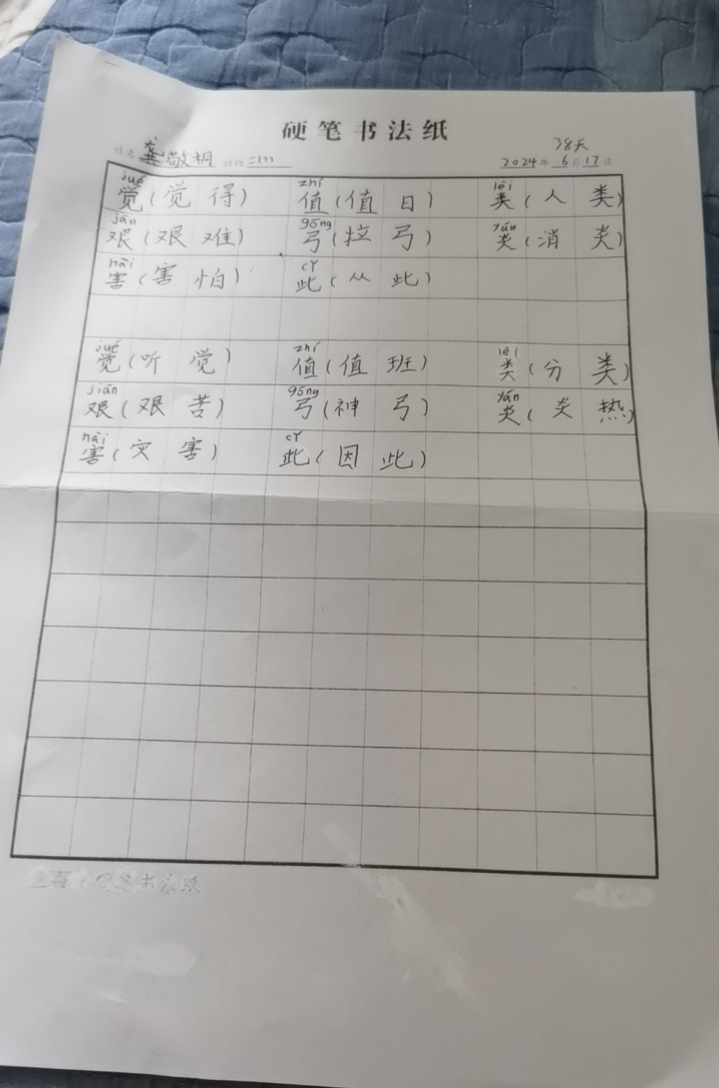 硬笔书法纸
38天
姓名 龚敬桐 班级 二(11) 2024年 6月 17日
jué zhí lèi
觉(觉得) 值(值日) 类(人类)
jān gōng yán
艰(艰难) 弓(拉弓) 炎(消炎)
hài cǐ
害(害怕) 此(从此)
jué zhí lèi
觉(听觉) 值(值班) 类(分类)
jiān gōng yán
艰(艰苦) 弓(神弓) 炎(炎热)
hài cǐ
害(灾害) 此(因此)